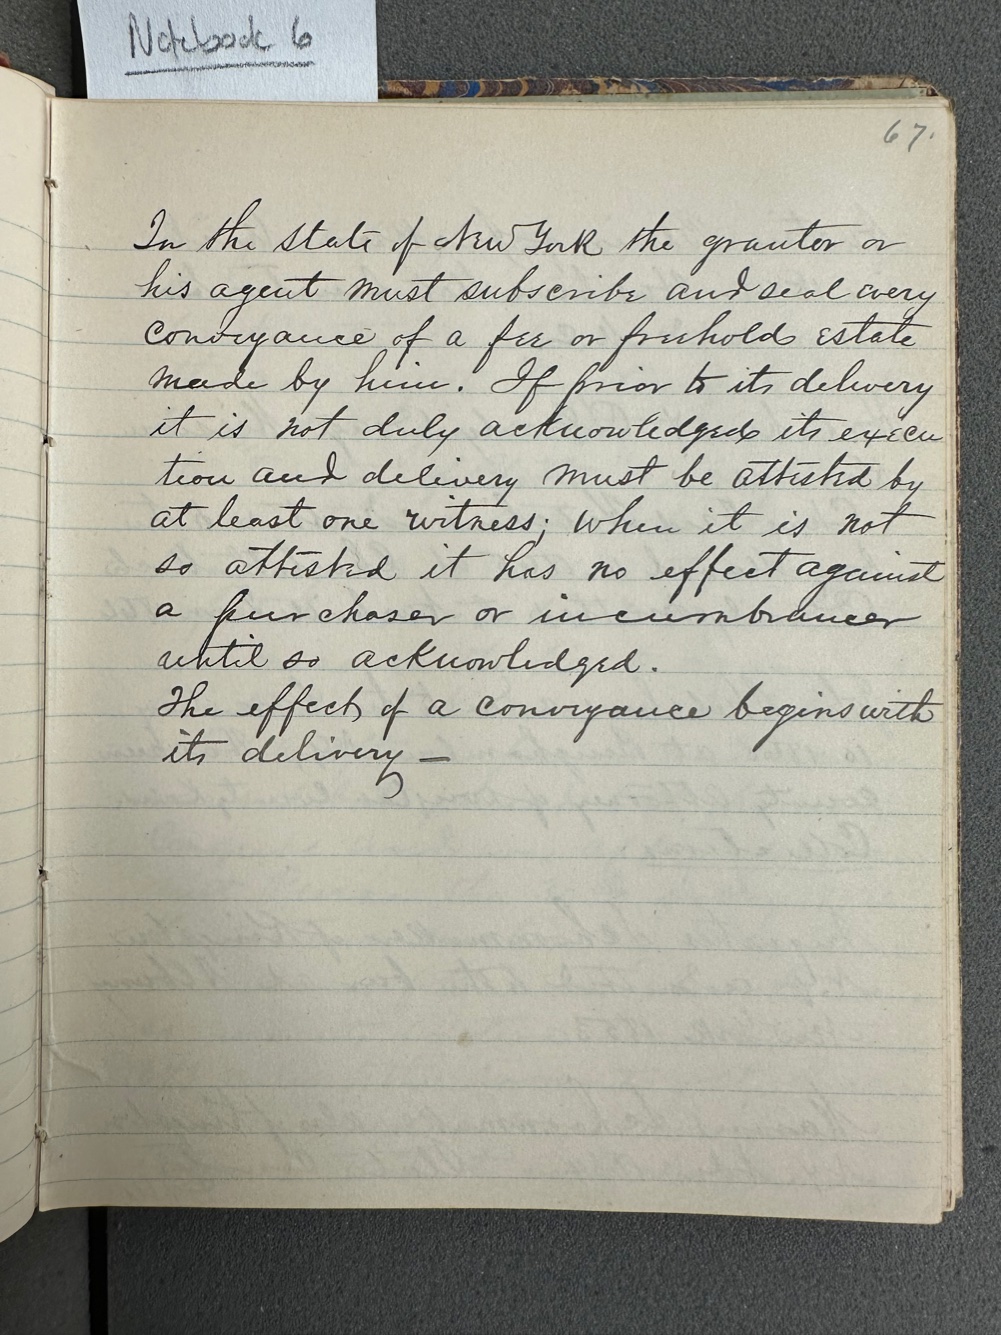 Notebook 6
67.
In the state of New York the grantor or
his agent must subscribe and seal every
conveyance of a fee or freehold estate
made by him. If prior to its delivery
it is not duly acknowledged its execu
tion and delivery must be attested by
at least one witness; when it is not
so attested it has no effect against
a purchaser or incumbrancer
until so acknowledged.
The effect of a conveyance begins with
its delivery —